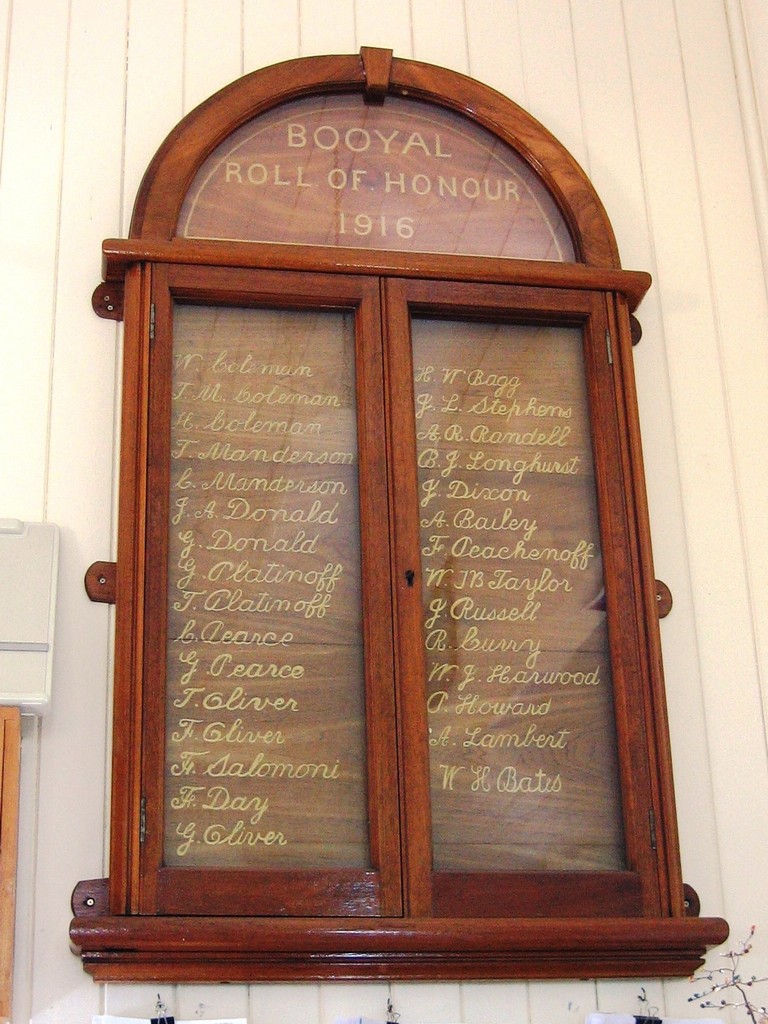 BOOYAL
ROLL OF HONOUR
1916
W. Coleman
T. M. Coleman
H. Coleman
T. Manderson
C. Manderson
J. A. Donald
G. Donald
G. Platinoff
T. Platinoff
C. Pearce
G. Pearce
T. Oliver
F. Oliver
F. Salomoni
F. Day
G. Oliver
H. W Bagg
J. L. Stephens
A. R. Randell
B. J. Longhurst
J. Dixon
A. Bailey
F. Peachenoff
W. IB Taylor
J. Russell
R. Curry
W. J. Harwood
Howard
A. Lambert
W H Bates